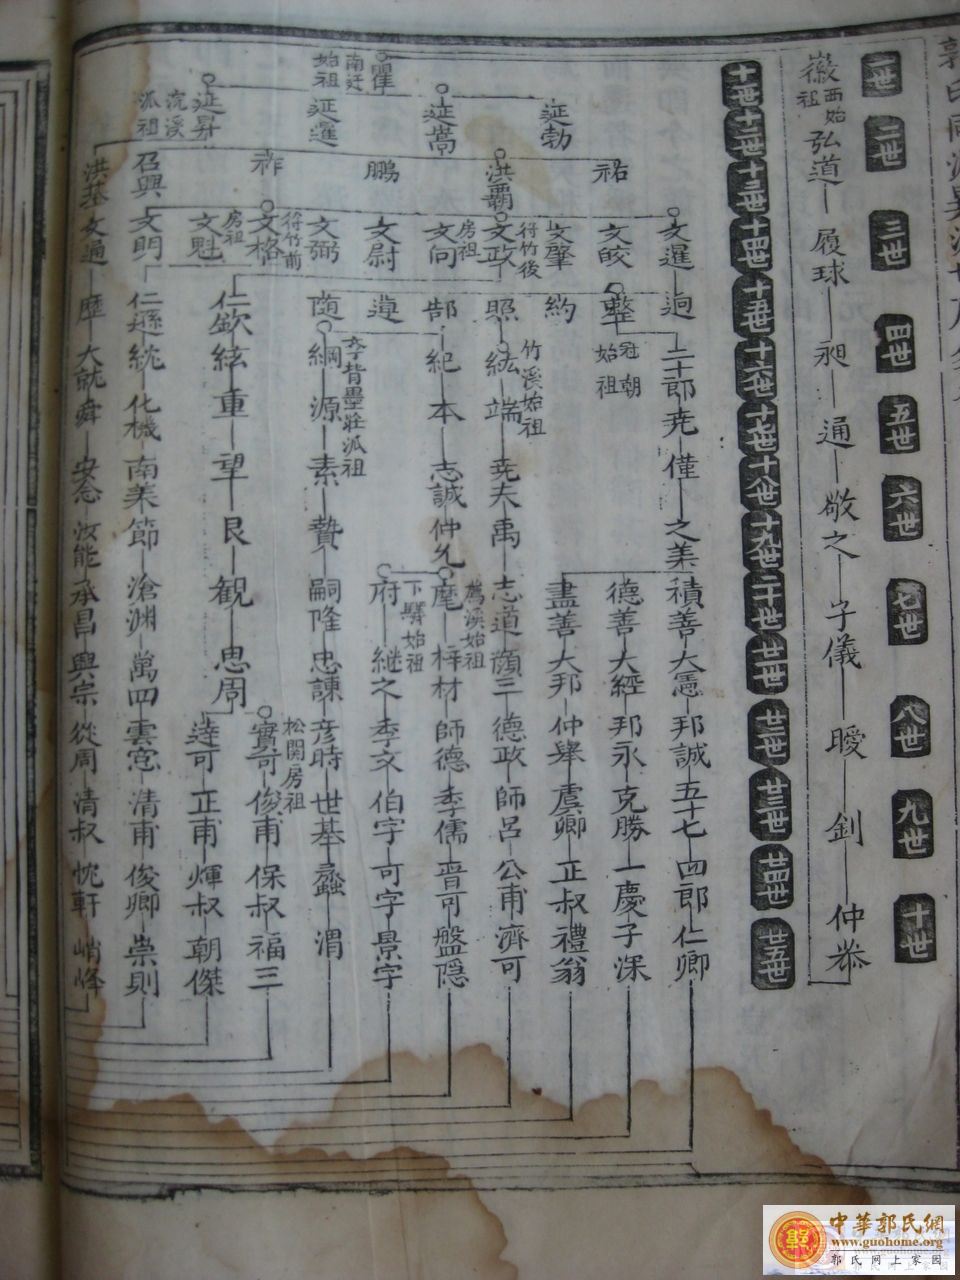 一世 二世 三世 四世 五世 六世 七世 八世 九世 十世
徽 西始祖 弘道 履球 昶 通 敬之 子儀 曖 釗 仲恭
十一世 十二世 十三世 十四世 十五世 十六世 十七世 十八世 十九世 二十世 廿一世 廿二世 廿三世 廿四世 廿五世
文暹 迥 二十郎 堯 僅 之美 積善 大憲 邦誠 五十七 四郎 仁卿
祐 文皎 整 冠朝始祖 德善 大經 邦永 克勝 一慶 子深
延勃 文肇 約 盡善 大邦 仲舉 虞卿 正叔 禮翁
洪霸 文政 符竹後房祖 照 紘 竹溪始祖 端 堯夫 禹 志道 顏三 德政 師呂 公甫 濟可
延嵩 文向 郜 紀 本 志誠 仲允 麾 薦溪始祖 梓材 師德 季儒 晋可 盤隱
瞿 南迁始祖 鵬 文尉 遵 府 下驛始祖 継之 季文 伯字 可字 景字
延暹 文弼 随 綱 李背墨莊派祖 源 素 贄 嗣隆 忠諫 彦時 世基 蠡 渭
祚 文格 符竹前房祖 實可 松関房祖 俊甫 保叔 福三
延昇 浣溪派祖 文魁 仁欽 絃 重 望 艮 観 思周 達可 正甫 煇叔 朝傑
召興 文明 仁遜 統 化機 南美 節 滄渊 萬四 雲窓 清甫 俊卿 崇則
洪基 文通 歷 大就 舜 安忿 汝能 承昌 興宗 從周 清叔 忱軒 峭峰
中華郭氏網
www.guohome.org
郭氏网上家园